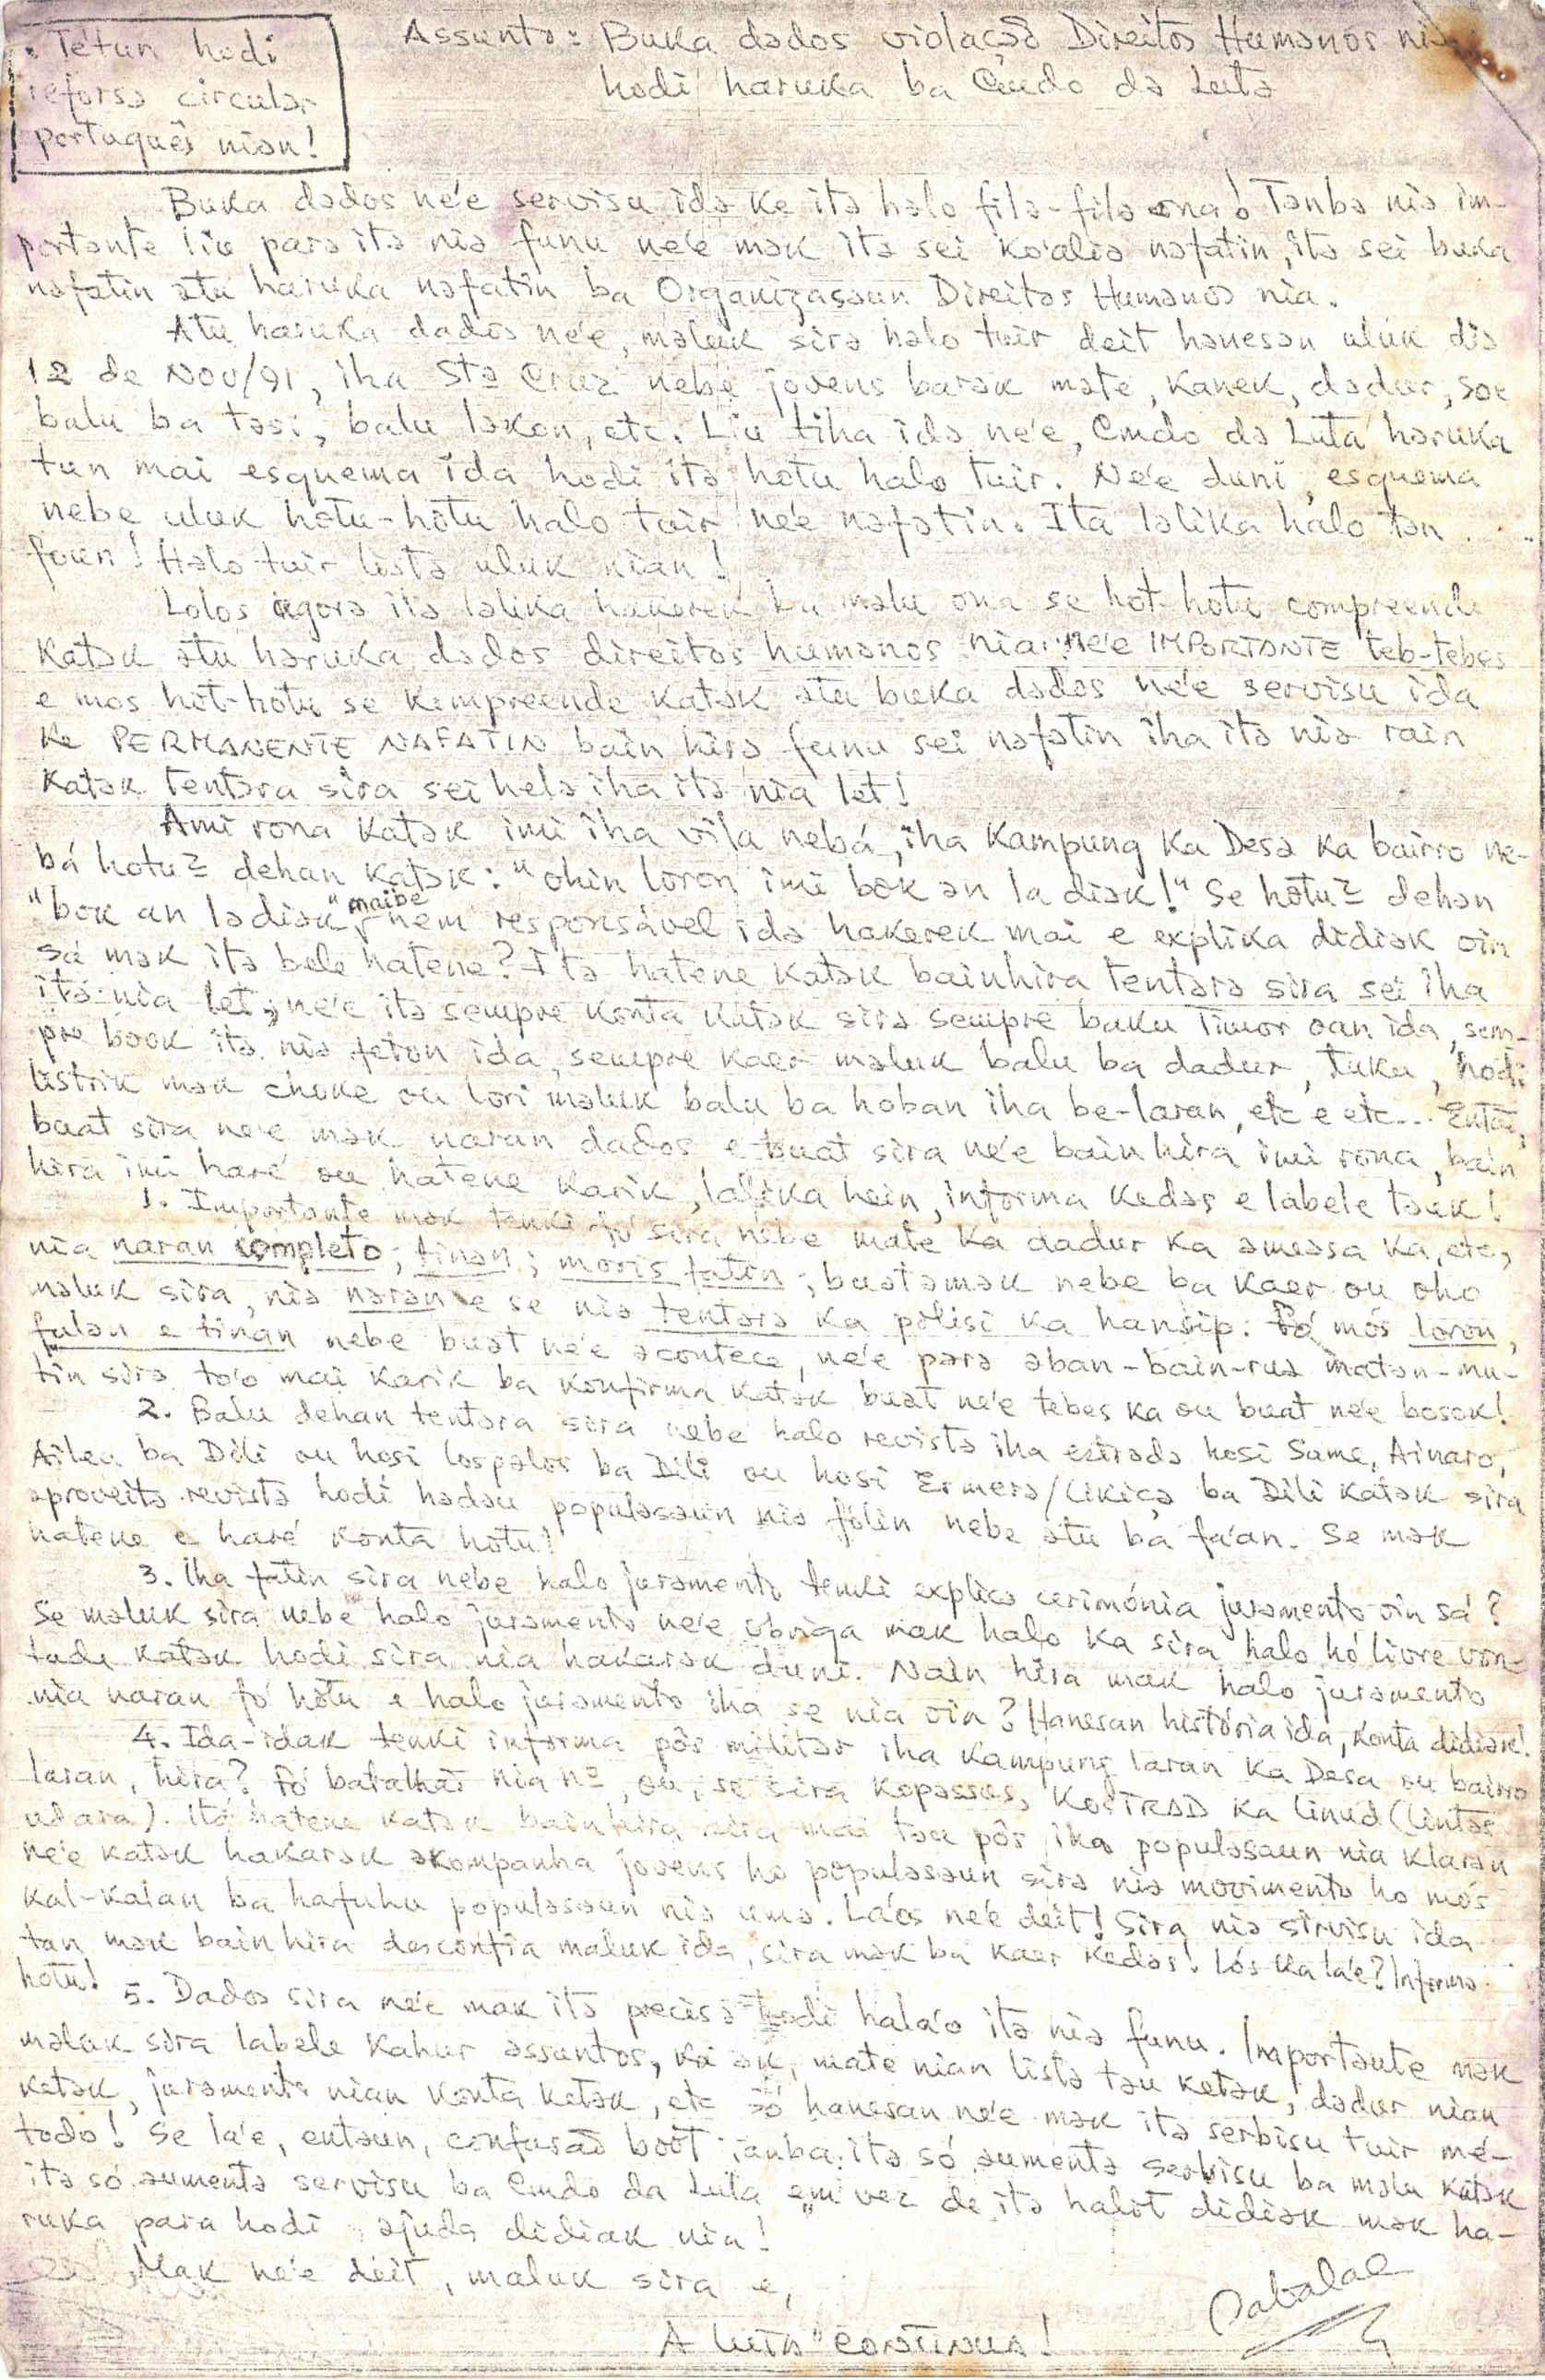 . Tétun hodi
reforsa circular
português nian!
Assunto: Buka dados violação Direitos Humanos nia
hodi haruka ba Cmdo da Luta
Buka dados ne'e servisu ida ke ita halo fila-fila ona! Tanba nia im-
portante liu para ita nia funu ne'e mak ita sei ko'alia nafatin, ita sei buka
nafatin atu haruka nafatin ba Organizasaun Direitos Humanos nia.
Atu haruka dados ne'e, maluk sira halo tuir deit hanesan uluk dia
12 de Nov/91, iha Sta Cruz nebé jovens barak mate, kanek, dadur, soe
balu ba tasi, balu lakon, etc. Liu tiha ida ne'e, Cmdo da Luta haruka
tun mai esquema ida hodi ita hotu halo tuir. Ne'e duni, esquema
nebe uluk hotu-hotu halo tuir ne'e nafatin. Ita lalika halo tan
foun! Halo tuir lista uluk nian!
Lolos agora ita lalika hakerek ba malu ona se hot-hotu compreende
katak atu haruka dados direitos humanos nia ne'e IMPORTANTE teb-tebes
e mos hot-hotu se kompreende katak atu buka dados ne'e servisu ida
ke PERMANENTE NAFATIN bain hira funu sei nafatin iha ita nia rain
katak tentara sira sei hela iha ita nia let!
Ami rona katak imi iha vila nebá, iha Kampung ka Desa ka bairro ne-
bá hotu² dehan katak: "ohin loron imi bok an la diak!" Se hotu² dehan
"bok an ladiak" maibe nem responsável ida hakerek mai e explika didiak oin
sá mak ita bele hatene? Ita hatene katak bainhira tentara sira sei iha
ita nia let, ne'e ita sempre konta katak sira sempre baku Timor oan ida, sem-
pre book ita nia feton ida, sempre kaer maluk balu ba dadur, tuku, hodi
listrik mak choke ou lori maluk balu ba hoban iha be-laran, etc e etc... Entã,
buat sira ne'e mak naran dados e buat sira ne'e bain hira imi rona, bain
hira imi haré ou hatene karik, lalika hein, informa kedas e labele tauk!
1. Importante mak tenki fó sira nebe mate ka dadur ka ameasa ka, etc,
nia naran completo; tinan; moris fatin; buatamak nebe ba kaer ou oho
maluk sira, nia naran e se nia tentara ka polisi ka hansip. Fó mós loron,
fulan e tinan nebe buat ne'e acontece, ne'e para aban-bain-rua matan-mu-
tin sira to'o mai karik ba konfirma katak buat ne'e tebes ka ou buat ne'e bosok!
2. Balu dehan tentara sira nebe halo revista iha estrada hosi Same, Ainaro,
Aileu ba Dili ou hosi Lospalos ba Dili ou hosi Ermera/Likiça ba Dili katak sira
aproveita revista hodi hadau populasaun nia fólin nebe atu ba fa'an. Se mak
hatene e haré konta hotu!
3. Iha fatin sira nebe halo juramento tenki explica cerimónia juramento oin sá?
Se maluk sira nebe halo juramento ne'e obriga mak halo ka sira halo hó livre von-
tade katak hodi sira nia hakarak duni. Nain hira mak halo juramento
nia naran fó hotu e halo juramento iha se nia oin? Hanesan história ida, konta didiak!
4. Ida-idak tenki informa pós militar iha Kampung laran ka Desa ou bairro
laran, hira? Fó batalhaõ nia nº, ou, se sira Kopassus, KOSTRAD ka Linud (Lintas
udara). Ita hatene katak bainhira sira mai tau pós iha populasaun nia klaran
ne'e katak hakarak akompanha jovens ho populasaun sira nia movimento ho mós
kal-kalan ba hafuhu populasaun nia uma. Lá'os ne'e deit! Sira nia sirvisu ida
tan mak bain hira desconfia maluk ida, sira mak ba kaer kedas! Lós ka la'e? Informa
hotu!
5. Dados sira ne'e mak ita precisa hodi hala'o ita nia funu. Importante mak
maluk sira labele kahur assuntos, ka ak, mate nian lista tau ketak, dadur nian
ketak, juramento nian konta ketak, etc só hanesan ne'e mak ita serbisu tuir mé-
todo! Se la'e, entaun, confusaõ boot tanba ita só aumenta serbisu ba malu katak
ita só aumenta servisu ba Cmdo da Luta em vez de ita halot didiak mak ha-
ruka para hodi ajuda didiak nia!
Mak ne'e deit, maluk sira e,
A luta continua!
Sabalae